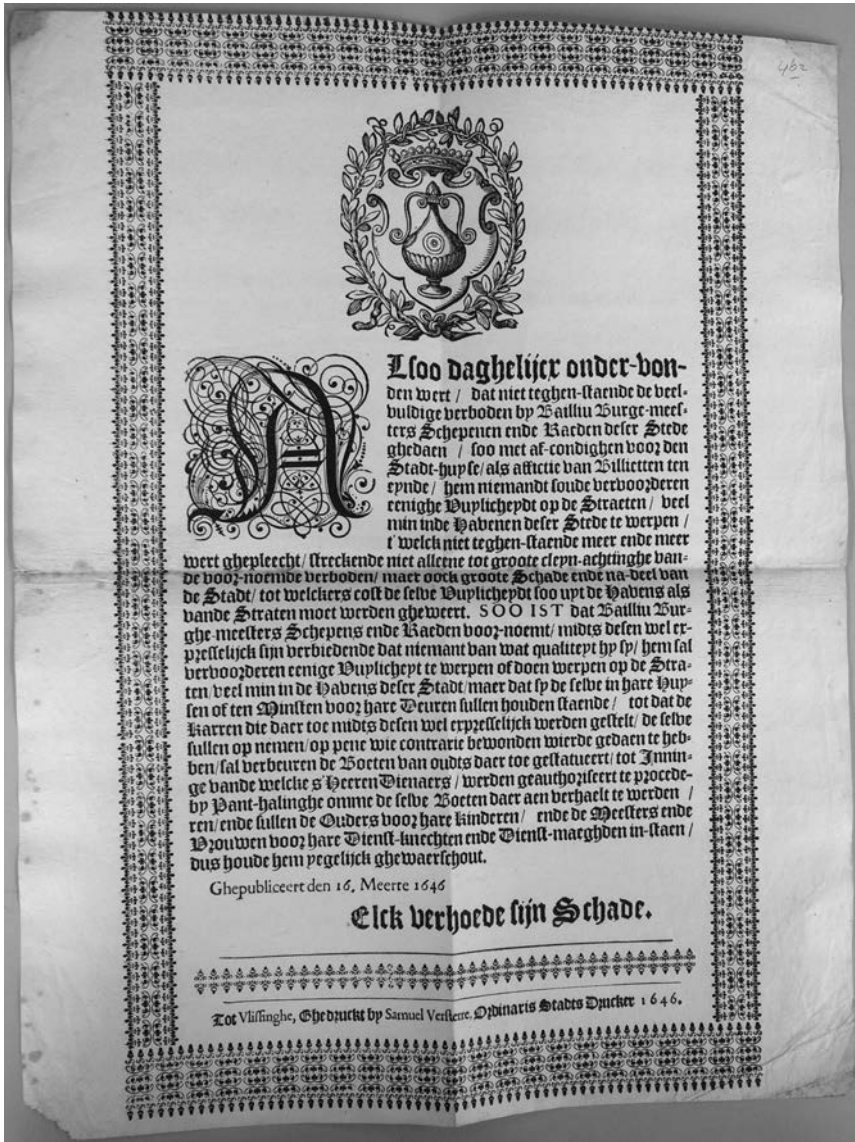 462
Alsoo daghelijcx onder-von-
den wert / dat niet teghen-staende de veel-
vuldige verboden by Bailliu Burge-mees-
ters Schepenen ende Raeden deser Stede
ghedaen / soo met af-condighen voor den
Stadt-huyse / als affictie van Billietten ten
eynde / hem niemandt soude vervoorderen
eenighe Vuylicheydt op de Straeten / veel
min inde Havenen deser Stede te werpen /
t'welck niet teghen-staende meer ende meer
wert ghepleecht / streckende niet alleene tot groote cleyn-achtinghe van-
de voor-noemde verboden / maer oock groote Schade ende na-deel van
de Stadt / tot welckers cost de selve Vuylicheydt soo uyt de Havens als
vande Straten moet werden gheweert. SOO IST dat Bailliu Bur-
ghe-meesters Schepens ende Raeden voor-noemt / midts desen wel ex-
presselijck sijn verbiedende dat niemant van wat qualiteyt hy sy / hem sal
vervoorderen eenige Vuylicheyt te werpen of doen werpen op de Stra-
ten / veel min in de Havens deser Stadt / maer dat sy de selve in hare Huy-
sen of ten Minsten voor hare Deuren sullen houden staende / tot dat de
Karren die daer toe midts desen wel expresselijck werden gestelt / de selve
sullen op nemen / op pene wie contrarie bewonden wierde gedaen te heb-
ben / sal verbeuren de Boeten van oudts daer toe gestatueert / tot Innin-
ge vande welcke s'Heeren Dienaers / werden geauthoriseert te procede-
by Pant-halinghe omme de selve Boeten daer aen verhaelt te werden /
ren / ende sullen de Ouders voor hare kinderen / ende de Meesters ende
Vrouwen voor hare Dienst-knechten ende Dienst-maeghden in-staen /
dus houde hem yegelijck ghewaerschout.
Ghepubliceert den 16. Meerte 1646
Elck verhoede sijn Schade.
Tot Vlissinghe, Ghedruckt by Samuel Versterre, Ordinaris Stadts Drucker 1646.